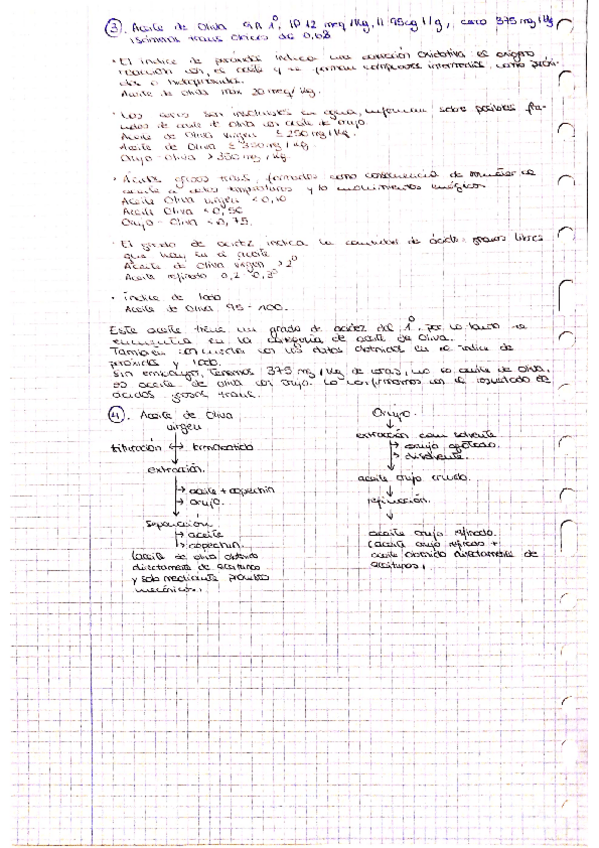 ③. Aceite de Oliva GA 1°, IP 12 meq/Kg, II 95cg I/g, cera 375 mg/Kg
isómeros trans óleicos de 0,68
· El índice de peróxidos indica una oxidativa: es origina
reacción con, es aceite y se forman compuestos intermedios, como
o hidroperóxidos.
Aceite de oliva max 20 meq/Kg.
· Las ceras son insolubles en agua, informan sobre posibles
de aceite de oliva con aceite de orujo
Aceite de Oliva virgen ≤ 250 mg/Kg.
Aceite de Oliva ≤ 350 mg/Kg.
Orujo - Oliva > 350 mg/Kg.
· Ácidos grasos trans, formados como consecuencia de
aceite a altas temperaturas y/o
Aceite Oliva virgen < 0,10
Aceite Oliva
Orujo - Oliva < 0,75.
· El grado de acidez indica la cantidad de ácidos grasos libres
que hay en el aceite
Aceite de Oliva virgen > 2°
Aceite refinado 0,2 - 0,3°
· índice de Iodo
Aceite de Oliva. 95 - 100.
Este aceite tiene un grado de acidez del 1°. Por lo tanto se
encuentra en la categoría de aceite de oliva.
También con los datos obtenidos en el índice de
peróxidos y Iodo.
Sin embargo, Tenemos 375 mg/Kg de ceras, no es aceite de oliva,
es aceite de oliva con orujo. Lo confirmamos con el resultado de
ácidos grasos trans.
④. Aceite de Oliva
virgen
trituración ↔ termobatido
extracción.
→ aceite + alpechín
→ orujo.
Separación
→ aceite
→ alpechín.
(aceite de oliva obtenido
directamente de aceitunas
y solo mediante procesos
mecánicos.
Orujo.
extracción con solvente
→ orujo agotado.
→ disolvente.
aceite orujo crudo.
refinación.
aceite orujo refinado.
(aceite orujo refinado +
aceite obtenido directamente de
aceitunas.